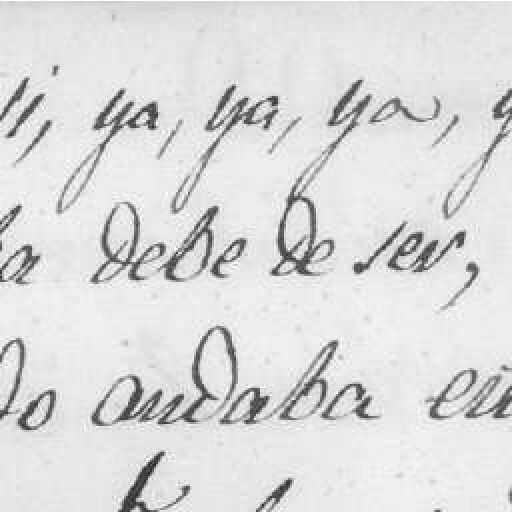 si, ya, ya, ya, y
ba debe de ser,
do andaba en